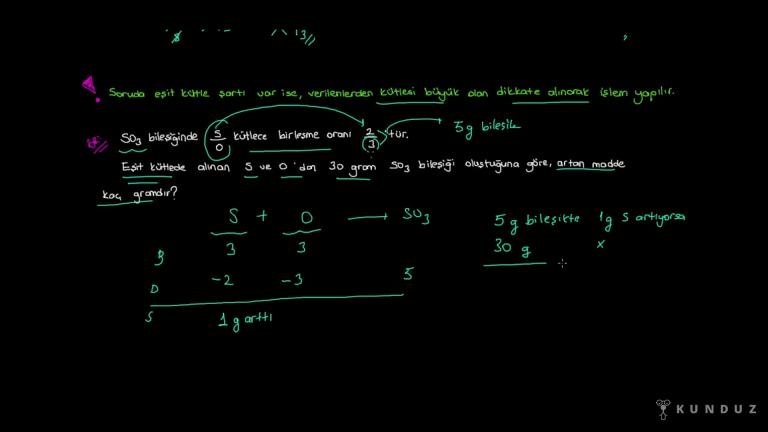 Soruda eşit kütle şartı var ise, verilenlerden kütlesi büyük olan dikkate alınarak işlem yapılır.
SO₃ bileşiğinde S/O kütlece birleşme oranı 2/3 'tür. 5g bileşik
Eşit kütlede alınan S ve O 'dan 30 gram SO₃ bileşiği oluştuğuna göre, artan madde
kaç gramdır?
S + O → SO₃
5g bileşikte 1g S artıyorsa
3 3
30 g x
D -2 -3 5
S 1 g arttı
KUNDUZ